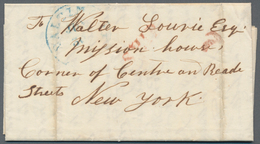 To Walter Lowrie Esq.
Mission house,
Corner of Centre an Reade
Streets
New York.